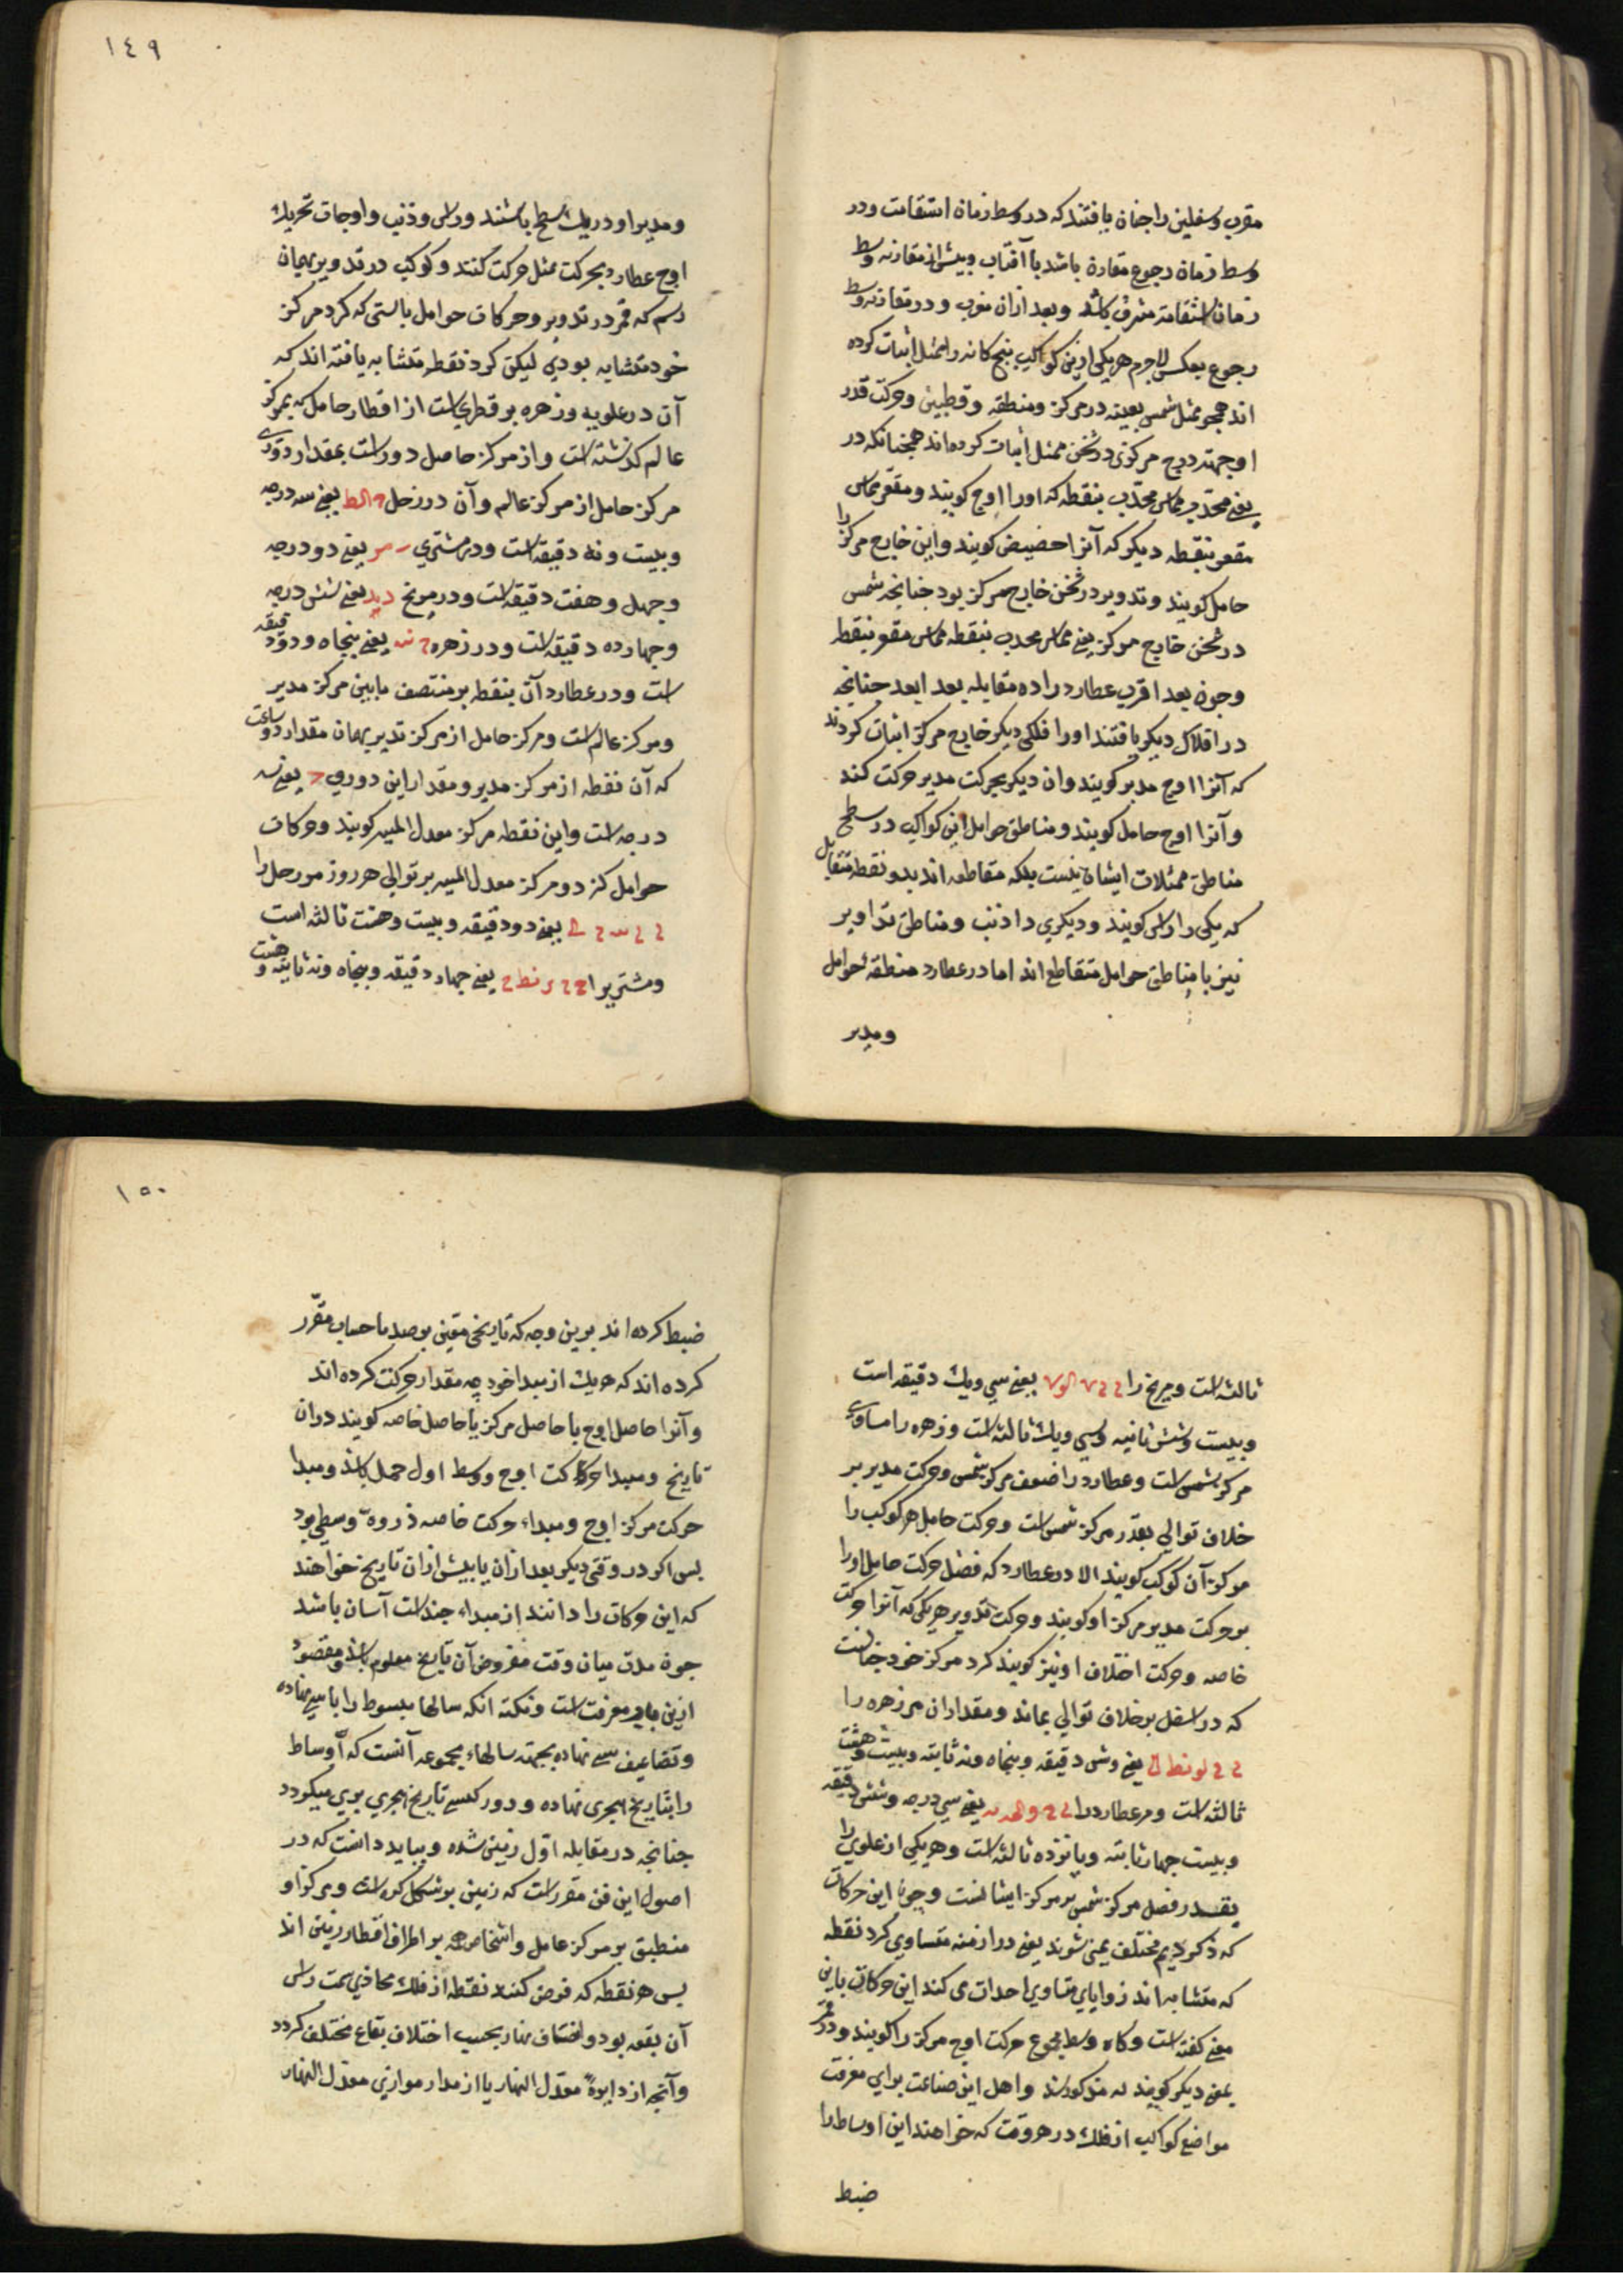 مغرب وسفلیین را چنان یافتند که در وسط زمان استقامت ودر
وسط زمان رجوع مقارن باشد با آفتاب وپیش از مقارنه وسط
زمان استقامت مشرق باشد وبعد ازان مغرب ودر مقارنه وسط
رجوع بعکس لاجرم هریکی ازین کواکب پنج کانه را ممثل اثبات کرده
اند همچو ممثل شمس بعینه در مرکز ومنطقه وقطبین وحرکت قدر
اوجهته در مرکزی در ثخن ممثل اثبات کرده اند همچنانکه در
یعنی محدب مماس محدب بنقطه که اورا اوج کویند ومقعر مماس
مقعر بنقطه دیکر که آنرا حضیض کویند واین خارج مرکز را
حامل کویند وتدویر در ثخن خارج مرکز بود چنانچه شمس
در ثخن خارج مرکز یعنی مماس محدب بنقطه مماس مقعر بنقطه
وچون بعد اقرب عطارد را ده مقابله بعد ابعد چنانچه
در افلاک دیکر یافتند اورا فلکی دیکر خارج مرکز اثبات کردند
که آنرا اوج مدیر کویند وان دیکر بحرکت مدیر حرکت کند
وآنرا اوج حامل کویند ومناطق حوامل این کواکب در سطح
مناطق ممثلات ایشان نیست بلکه متقاطعه اند بدو نقطه متقابل
که یکی را راس کویند ودیکری را ذنب ومناطق تداویر
نیز با مناطق حوامل متقاطع اند اما در عطارد منطقه حوامل
ومدیر
١٤٩
ومدیر او در یک سطح باشند وراس وذنب واوجات تحریک
اوج عطارد بحرکت ممثل حرکت کنند وکوکب در تدویر بهمان
رسم که قمر در تدویر وحرکات حوامل بایستی که کرد مرکز
خود متشابه بودی لیکن کرد نقطه متشابه یافته اند که
آن در علویه وزهره بر قطری است از اقطار حامل که بمرکز
عالم کذشته است واز مرکز حامل دور است بمقدار دوری
مرکز حامل از مرکز عالم وآن در زحل یعنی سه درجه
وبیست ونه دقیقه است ودر مشتری یعنی دو درجه
وچهل وهفت دقیقه است ودر مریخ یعنی شش درجه
وچهارده دقیقه است ودر زهره یعنی پنجاه ودو دقیقه
است ودر عطارد آن بنقطه بر منتصف مابین مرکز مدیر
ومرکز عالم است ومرکز حامل از مرکز تدیر بهمان مقدار دور است
که آن نقطه از مرکز مدیر ومقدار این دوری یعنی سه
درجه است واین نقطه مرکز معدل المسیر کویند وحرکات
حوامل کرد مرکز معدل المسیر بر توالی هر روز مر زحل را
یعنی دو دقیقه وبیست وهفت ثالثه است
ومشتریرا یعنی چهار دقیقه وپنجاه ونه ثانیه وهشت
ثالثه است ومریخ را یعنی سی ویک دقیقه است
وبیست وشش ثانیه وسی ویک ثالثه است وزهره را مساوی
مرکز شمس است وعطارد را ضعف مرکز شمس وحرکت مدیر بر
خلاف توالی بقدر مرکز شمس است وحرکت حامل هر کوکب را
مرکز آن کوکب کویند الا در عطارد که فضل حرکت حامل اورا
بر حرکت مدیر مرکز او کویند وحرکت تدویر هریکی که آنرا حرکت
خاصه وحرکت اختلاف او نیز کویند کرد مرکز خود چنانست
که در اسفل بر خلاف توالی بماند ومقدار ان مر زهره را
یعنی وشی دقیقه وپنجاه ونه ثانیه وبیست وهشت
ثالثه است ومر عطارد را یعنی سی درجه وشش دقیقه
وبیست چهار ثانیه وپانزده ثالثه است وهریکی از علوی را
بقدر فضل مرکز شمس بر مرکز ایشانست وچون این حرکات
که ذکر کردیم مختلف نمی شوند یعنی در ازمنه متساوی کرد نقطه
که متشابه اند زوایای متساوی احداث می کند این حرکات باین
معنی کفته است وکاه وسط مجموع حرکت اوج مرکز را کویند ودر قمر
بمعنی دیکر کویند که مذکور شد واهل این صناعت برای معرفت
مواضع کواکب از فلک در هر وقت که خواهند این اوساط را
ضبط
١٥٠
ضبط کرده اند برین وجه که تاریخی معین بر صد یا حساب مقرر
کرده اند که هریک از مبدا خود چه مقدار حرکت کرده اند
وآنرا حاصل اوج یا حاصل مرکز یا حاصل خاصه کویند دران
تاریخ ومبدا حرکات کت اوج ووسط اول حمل باشد ومبدا
حرکت مرکز اوج ومبداء حرکت خاصه ذروهٔ وسطی بود
پس اکر در وقتی دیکر بعد ازان یا پیش ازان تاریخ خواهند
که این حرکات را دانند از مبداء چند است آسان باشد
چون مدت میان وقت مفروض آن تاریخ معلوم باشد ومقصود
ازین باب معرفت است ونکته انکه سالها مبسوط را با سی نهاده
وتضاعیف سی نهاده بجهته سالهاء مجموعه آنست که اوساط
را بتاریخ هجری نهاده ودور کبسی تاریخ هجری بری میکردد
چنانچه در مقابله اول زینی شده وبباید دانست که در
اصول این فن مقرر است که زمین بر شکل کره است ومرکز او
منطبق بر مرکز عامل واشخاص همه بر اطراف اقطار زمین اند
پس هر نقطه که فرض کنند نقطه از فلک محاذی سمت راس
آن بقعه بود واختلاف نهار بحسب اختلاف بقاع مختلف کردد
وآنچه از دایرهٔ معدل النهار یا از مدار موازی معدل النهار